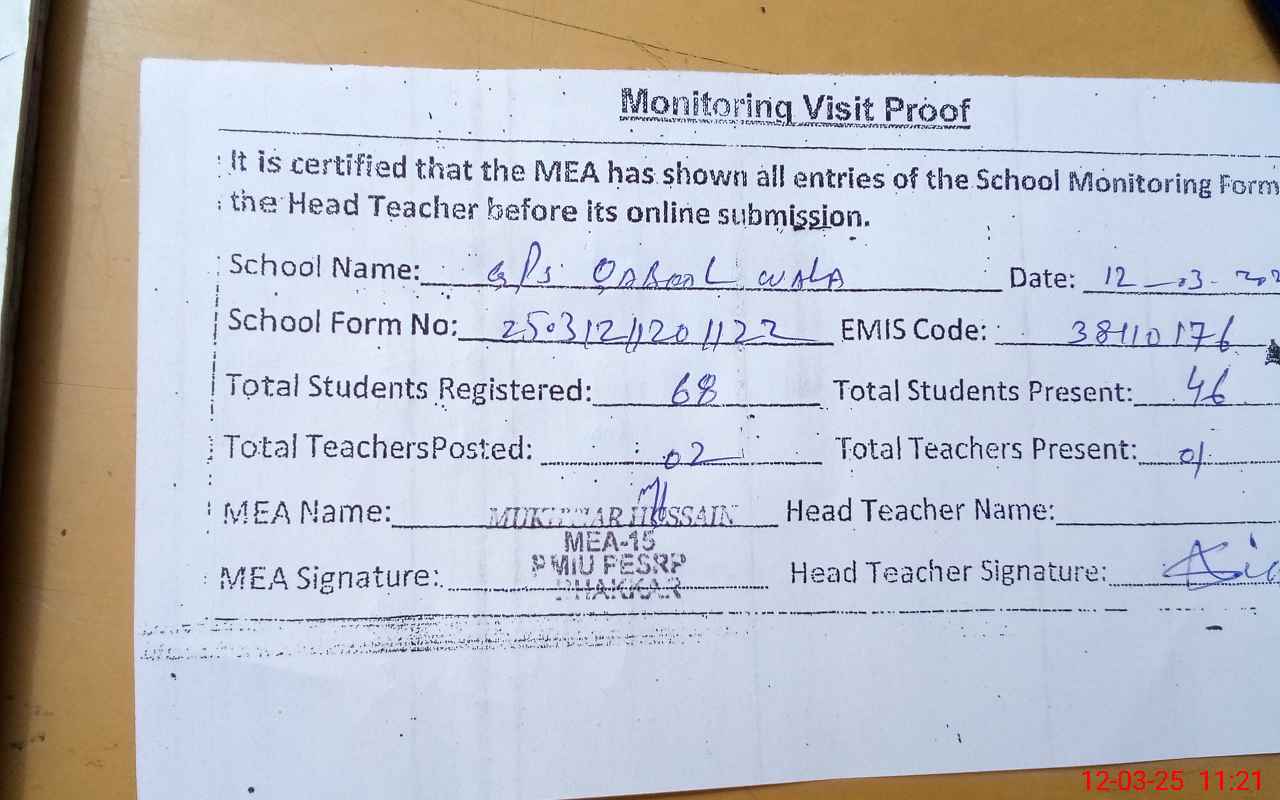 Monitoring Visit Proof
It is certified that the MEA has shown all entries of the School Monitoring Form
the Head Teacher before its online submission.
School Name: GPS WALA Date: 12-03-202
School Form No: EMIS Code: 38110176
Total Students Registered: 68 Total Students Present: 46
Total TeachersPosted: 02 Total Teachers Present: 01
MEA Name: MUKHTIAR HUSSAIN Head Teacher Name:
MEA-15
PMIU PESRP
BHAKKAR
MEA Signature: Head Teacher Signature:
12-03-25 11:21